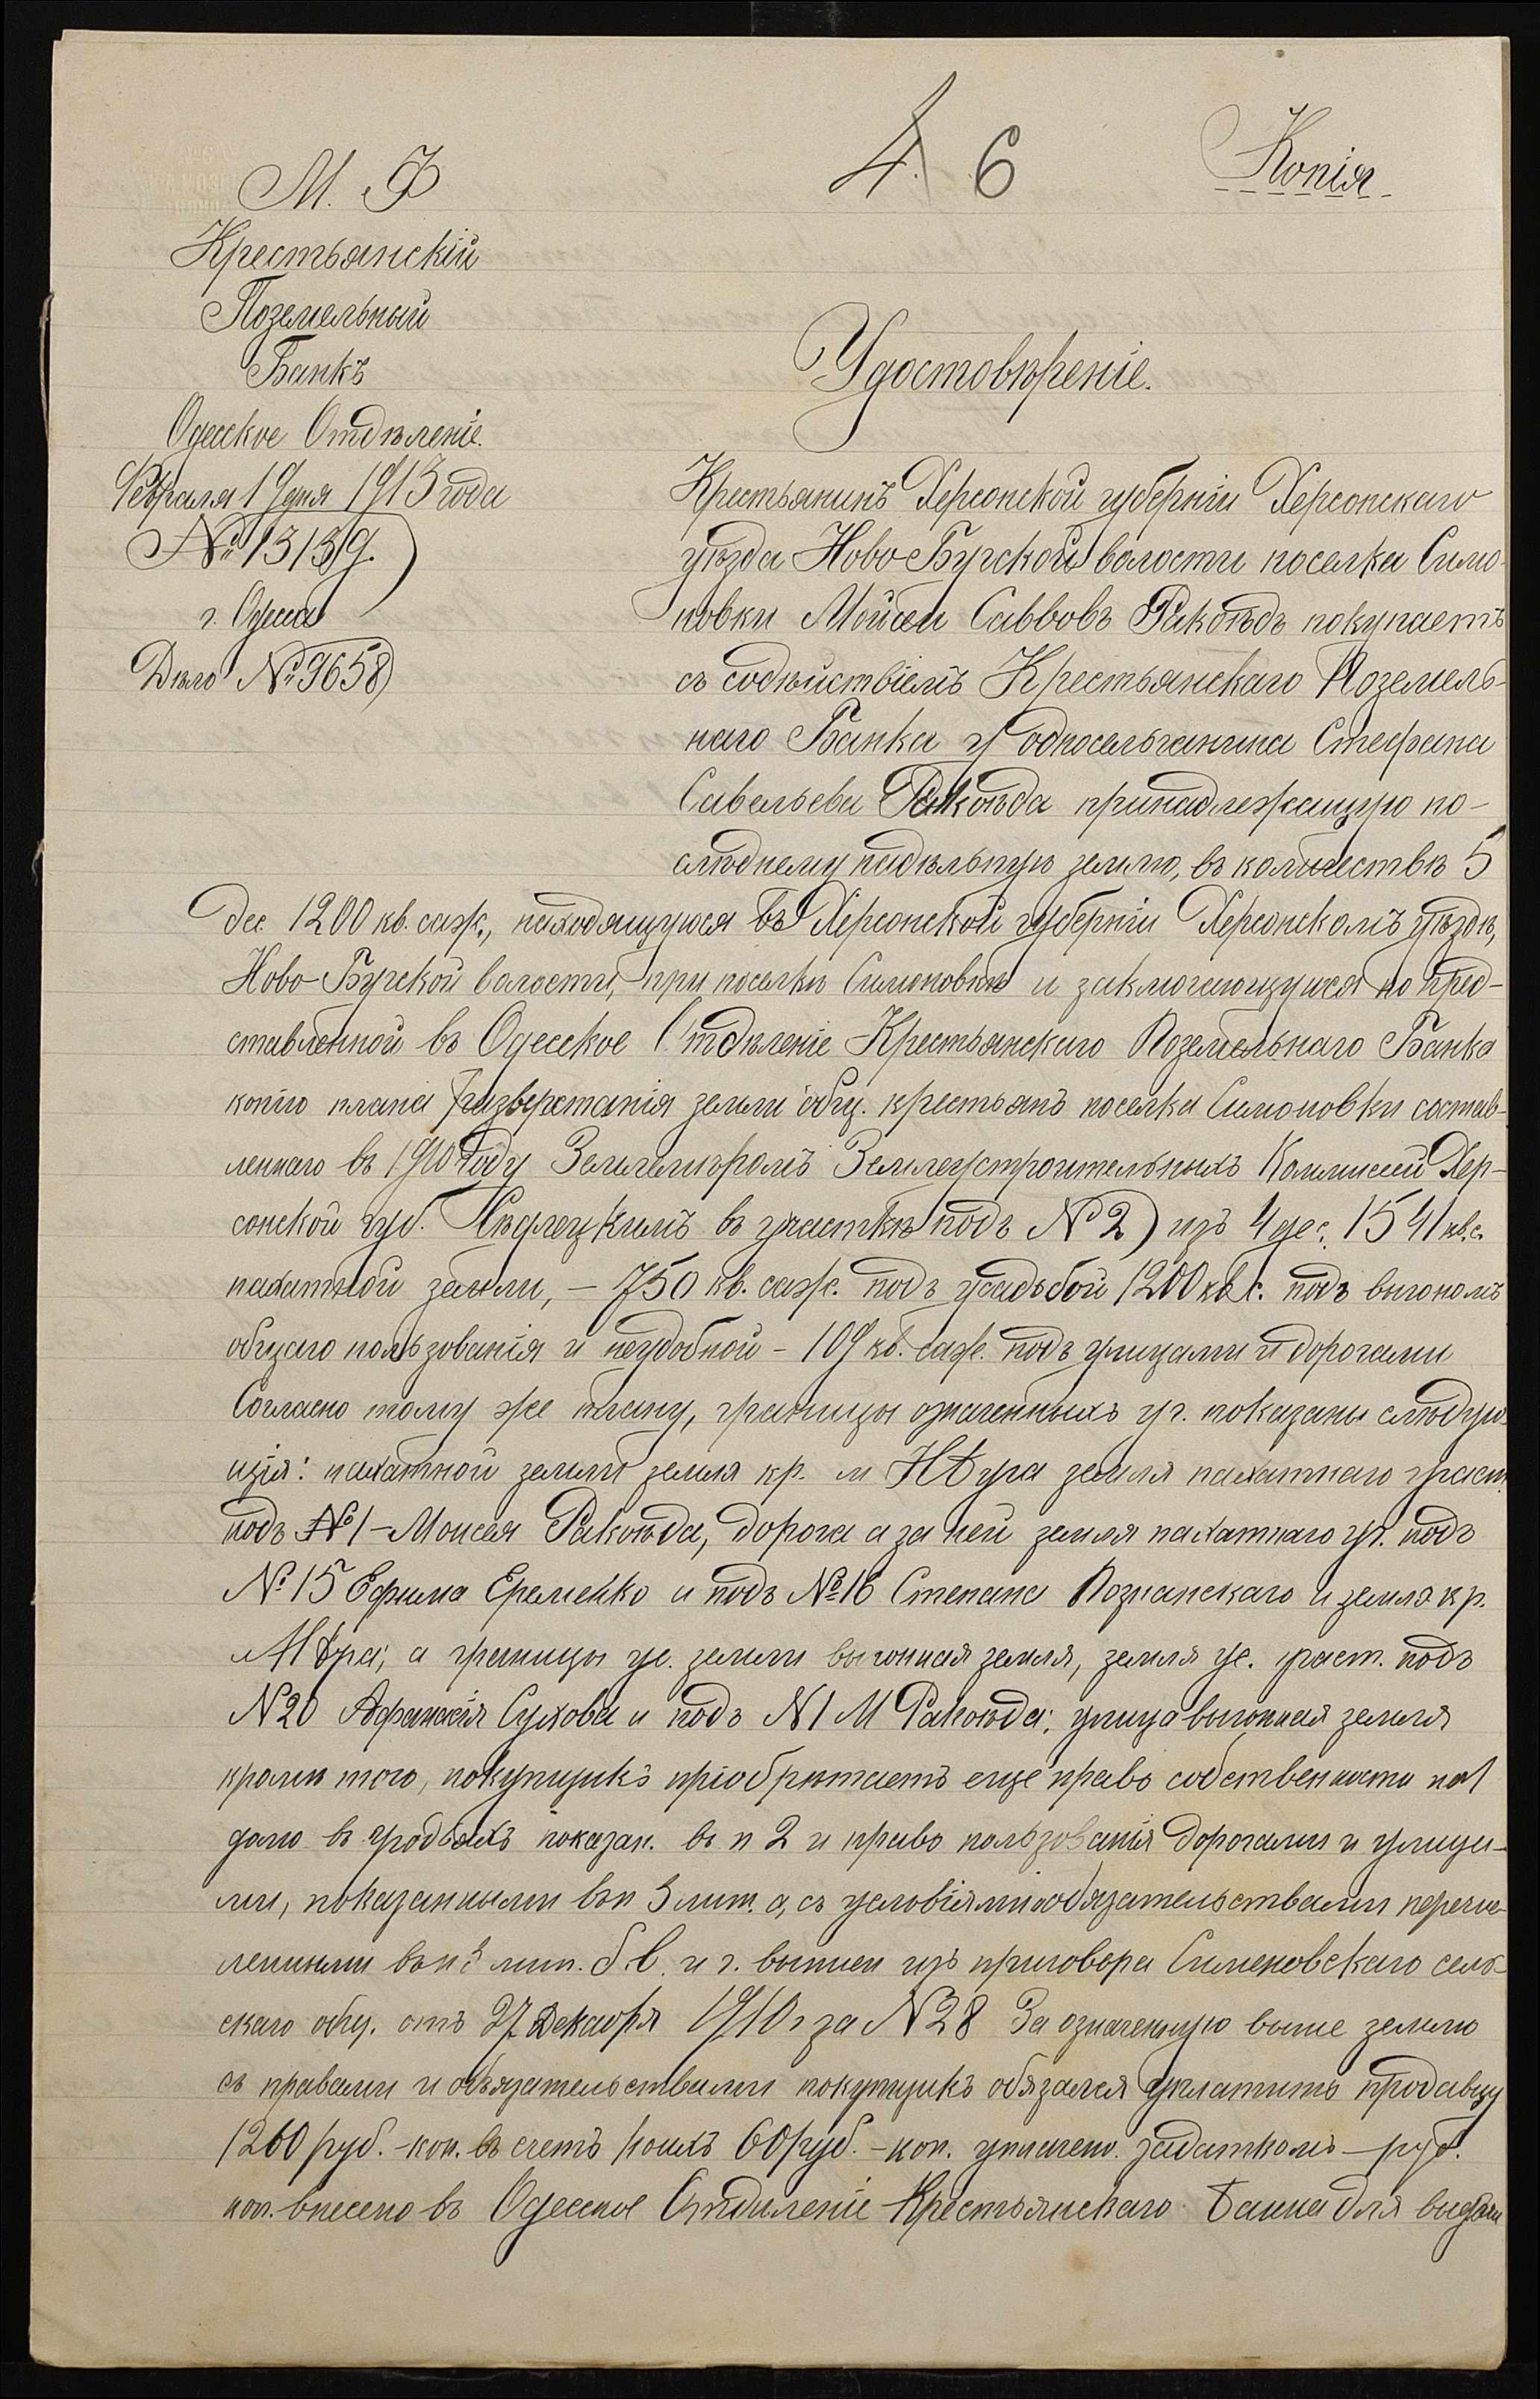 4. 6
Копія
М. Ф
Крестьянскій
Поземельный
Банкъ
Одесское Отдѣленіе.
Февраля 19 дня 1913 года
№ 13139.
г. Одесса
Дѣло № 9658
Удостовѣреніе.
Крестьянинъ Херсонской губерніи Херсонскаго
уѣзда Ново-Бугской волости поселка Симо-
новки Мойсей Савовъ Ракоѣдъ покупаетъ
съ содѣйствіемъ Крестьянскаго Поземель-
наго Банка у односельчанина Стефана
Савельева Ракоѣда принадлежащую по-
слѣднему надѣльную землю, въ количествѣ 5
дес. 1200 кв. саж., находящуюся въ Херсонской губерніи Херсонскомъ уѣздѣ,
Ново-Бугской волости, при поселкѣ Симоновкѣ и заключающуюся по пред-
ставленной въ Одесское Отдѣленіе Крестьянскаго Поземельнаго Банка
копіи плана разверстанія земли общ. крестьянъ поселка Симоновки состав-
леннаго въ 1910 году Землемѣромъ Землеустроительныхъ Коммисий Хер-
сонской губ. въ участкѣ подъ № 2) изъ 4 дес. 1541 кв.с.
пахатной земли, – 750 кв. саж. подъ усадьбой 1200 кв с. подъ выгономъ
общаго пользованія и неудобной – 109 кв. саж. подъ улицами и дорогами
Согласно тому же плану, границы означенныхъ уч. показаны слѣдую-
щія: пахатной земли земля кр. м земля пахатнаго участ.
подъ № 1 – Моисея Ракоѣда, дорога а за ней земля пахатнаго уч. подъ
№ 15 Ефима Еременко и подъ № 16 Степана Познанскаго и земля кр.
а границы ус. земли выгонная земля, земля ус. участ. подъ
N 20 Афанасія Сухова и подъ N 1 М Ракоѣда; улица выгонная земля
кромѣ того, покупщикъ пріобрѣтаетъ еще право собственности на 1
долю въ угодьяхъ показан. въ п 2 и право пользованія дорогами и улица-
ми, показанными въ п 3 лит. а, съ условіями и обязательствами перечис-
ленными въ п 3 лит. б. в. и г. выписи изъ приговора Симоновскаго сель-
скаго общ. отъ 27 Декабря 1910 г за N 28 За означенную выше землю
съ правами и обязательствами покупщикъ обязался уплатить продавцу
1260 руб. – коп. въ счетъ коихъ 60 руб. – коп. уплачено задаткомъ – руб.
коп. внесено въ Одесское Отдѣленіе Крестьянскаго Банка для выдачи